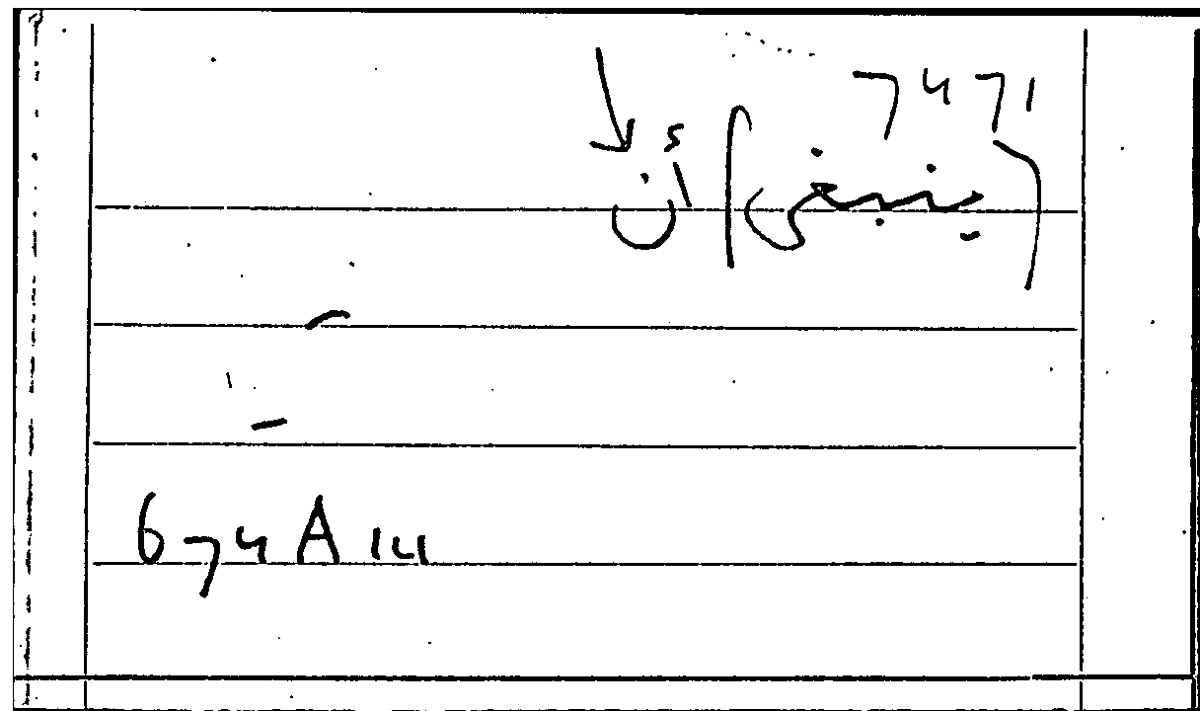 7471
(ينبغي) أن
674A14